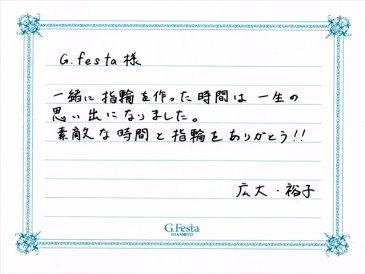 G.festa様
一緒に指輪を作った時間は一生の
思い出になりました。
素敵な時間と指輪をありがとう!!
広大・裕子
G.Festa
DIAMOND